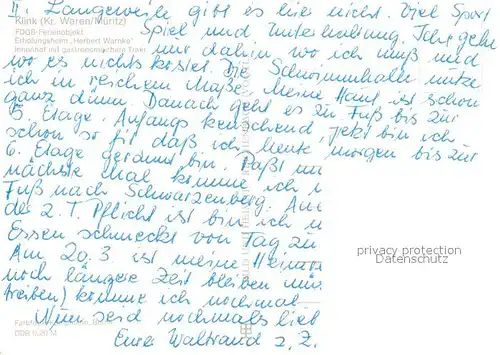 II. Langeweile gibt es hier nicht. Viel Sport
Klink (Kr. Waren/Müritz)
Spiel und Unterhaltung. Ich gehe
FDGB-Ferienobjekt
Erholungsheim „Herbert Warnke“
nur dahin wo ich muß und
Innenhof mit gastronomischem
wo es nichts kostet. Die Schwimmhalle nutze
ich in reichem Maße. Meine Haut ist schon
ganz dünn. Danach geht es zu Fuß bis zur
5. Etage. Anfangs keuchend, jetzt bin ich
schon so fit daß ich heute morgen bis zur
6. Etage gerannt bin. Paßt
nächste Mal komme ich
Fuß nach Schwarzenberg.
des 2. T. Pflicht ist bin ich
Essen schmeckt von Tag zu
Am 20.3. ist meine
noch längere Zeit bleiben
treiben) komme ich nochmal
Nun seid nochmals
Eure Waltraud z. Z.
privacy protection
Datenschutz